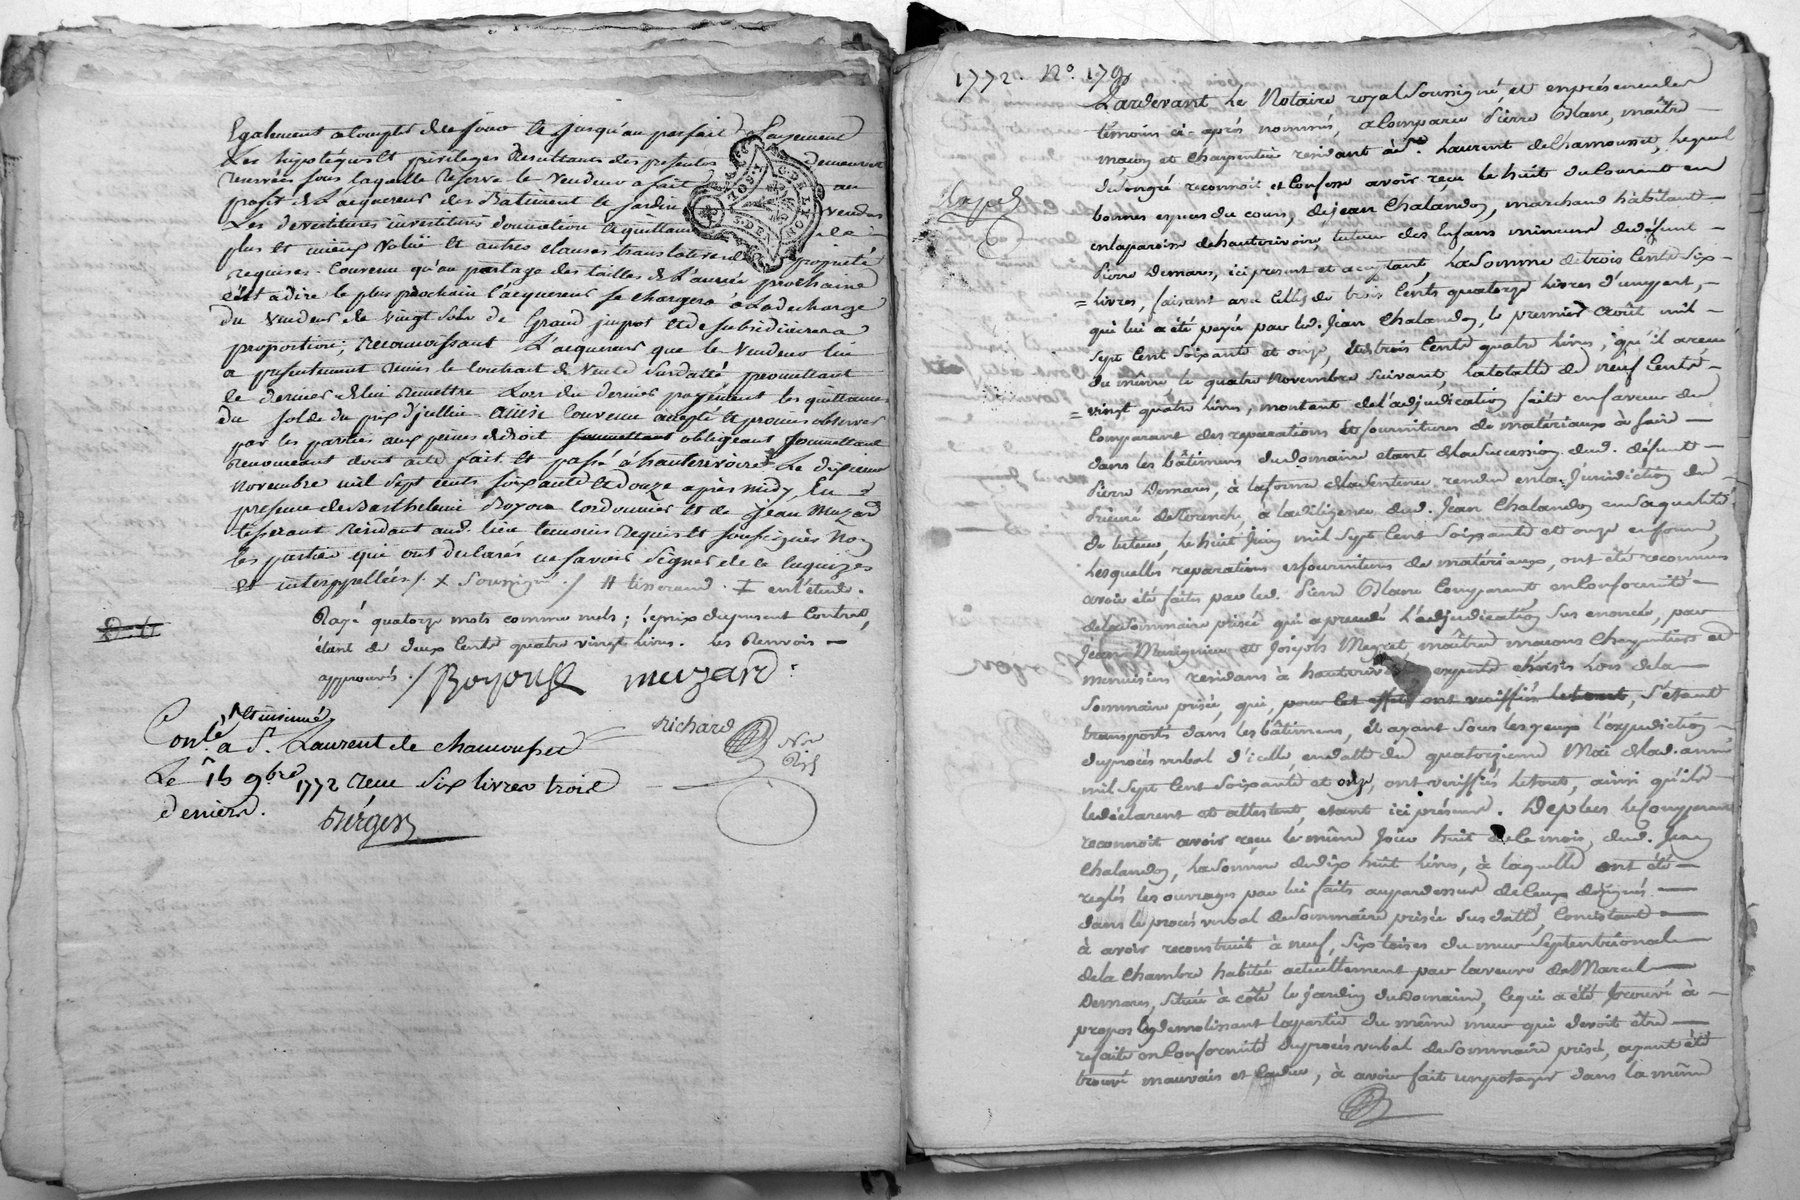 Egalement a compter de ce jour et jusqu'au parfait payement
Les hipotéques et privileges Resultants des presentes demeurent
reservés sous laquelle reserve le vendeur a fait au
profit de l'acquereur des Batiment et jardin vendus
Les devestitures investitures
plus et mieux value et autres clauses translatives de proprieté
requises. Convenu qu'au partage des tailles de L'année prochaine
c'est a dire le plus prochain l'acquereur se chargera a La decharge
du vendeur de vingt sols de Grand impot et de subsidiaire a
proportion; reconnoissant L'acquereur que le vendeur lui
a presentement remis le contrat de vente susdatté promettant
ce dernier de lui remettre Lors du dernier payement les quittances
du solde du prix d'jcelle. Ainsi convenu accepté et promis observer
par les parties aux peines de droit soumettant obligeant soumettant
renonceant dont acte fait et passé à hauterivoire Le dixieme
novembre mil sept cents soixante et douze après midy, En
presence de Barthelemi Boyou cordonnier et de Jean Muzard
tisserant Residant aud. lieu temoins requis et soussignés Non
les parties qui ont declarés ne savoir signer de ce enquises
et interppellées /. x soussigné ./ # tisserand. ‡ en l'étude.
Rayé quatorze mots comme nuls; le prix du present Contrat,
étant de deux cents quatre vingt livres. les Renvois
approuvés. /
muzard
Richard
Not
Roy
Conlé et insinué
a St. Laurent de chamousset
Le 15 9bre 1772 reçu six livres trois
deniers.
1772. N°. 179
Pardevant le Notaire royal soussigné, et en présence des
témoins ci-après nommés, a comparu Pierre Blanc, maître
maçon et charpentier residant à St. Laurent de chamousset, lequel
de son gré reconnoit et confesse avoir reçu le huit du courant en
bonnes especes du cours, de jean Chalandon, marchand habitant
en la paroisse de hauterivoire, tuteur des Enfans mineurs de défunt
Pierre Demares, ici present et acceptant, la somme de trois cents six
= livres, faisant avec celle de trois cents quatorze livres d'une part,
qui lui a été payée par led. jean Chalandon, le premier Août mil
sept cent soixante et onze, et de trois cents quatre livres, qu'il a reçu
du même le quatre Novembre suivant, la totalle de neuf cents
= vingt quatre livres, montant de l'adjudication faite en faveur du
Comparant des reparations et fournitures de matériaux à faire
dans les bâtimens du Domaine étant de la succession dud. défunt
Pierre Demares, à la forme de la sentence rendue en la Juridiction du
Prieuré de Torench, a la diligence dud. Jean Chalandon en sa qualité
de tuteur, le huit Juin mil sept cent soixante et onze en forme,
Lesquelles reparations et fournitures de matériaux, ont été reconnues
avoir été faites par led. Pierre Blanc Comparant en conformité
de la sommaire prisée qui a precedé l'adjudication sus énoncée, par
Jean et Joseph maîtres maçons charpentiers et
menuisiers residans à hauterivoire experts choisis lors de la
sommaire prisée, qui, pour cet effet ont veriffiés le tout, s'étant
transportés dans les bâtimens, et ayant sous les yeux l'expedition
du procès verbal d'icelle, en datte du quatorzieme Mai de lad. année
mil sept cent soixante et onze, ont veriffiés le tout, ainsi qu'ils
le déclarent et attestent, étant ici présens. De plus le comparant
reconnoit avoir reçu le même Jour huit de ce mois, dud. Jean
Chalandon, la somme de dix huit livres, à laquelle ont été
reglés les ouvrages par lui faits au pardessus de ceux désignés
dans le procès verbal de sommaire prisée susdatté, Consistant
à avoir reconstruit à neuf, six toises du mur septentrional
de la chambre habitée actuellement par la veuve de Marcel
Demares, située à côté le jardin du Domaine, ce qui a été trouvé à
propos en demolissant la partie du même mur qui devoit être
refaite en conformité du procès verbal de sommaire prisée, ayant été
trouvé mauvais et caduc, à avoir fait un potager dans la même